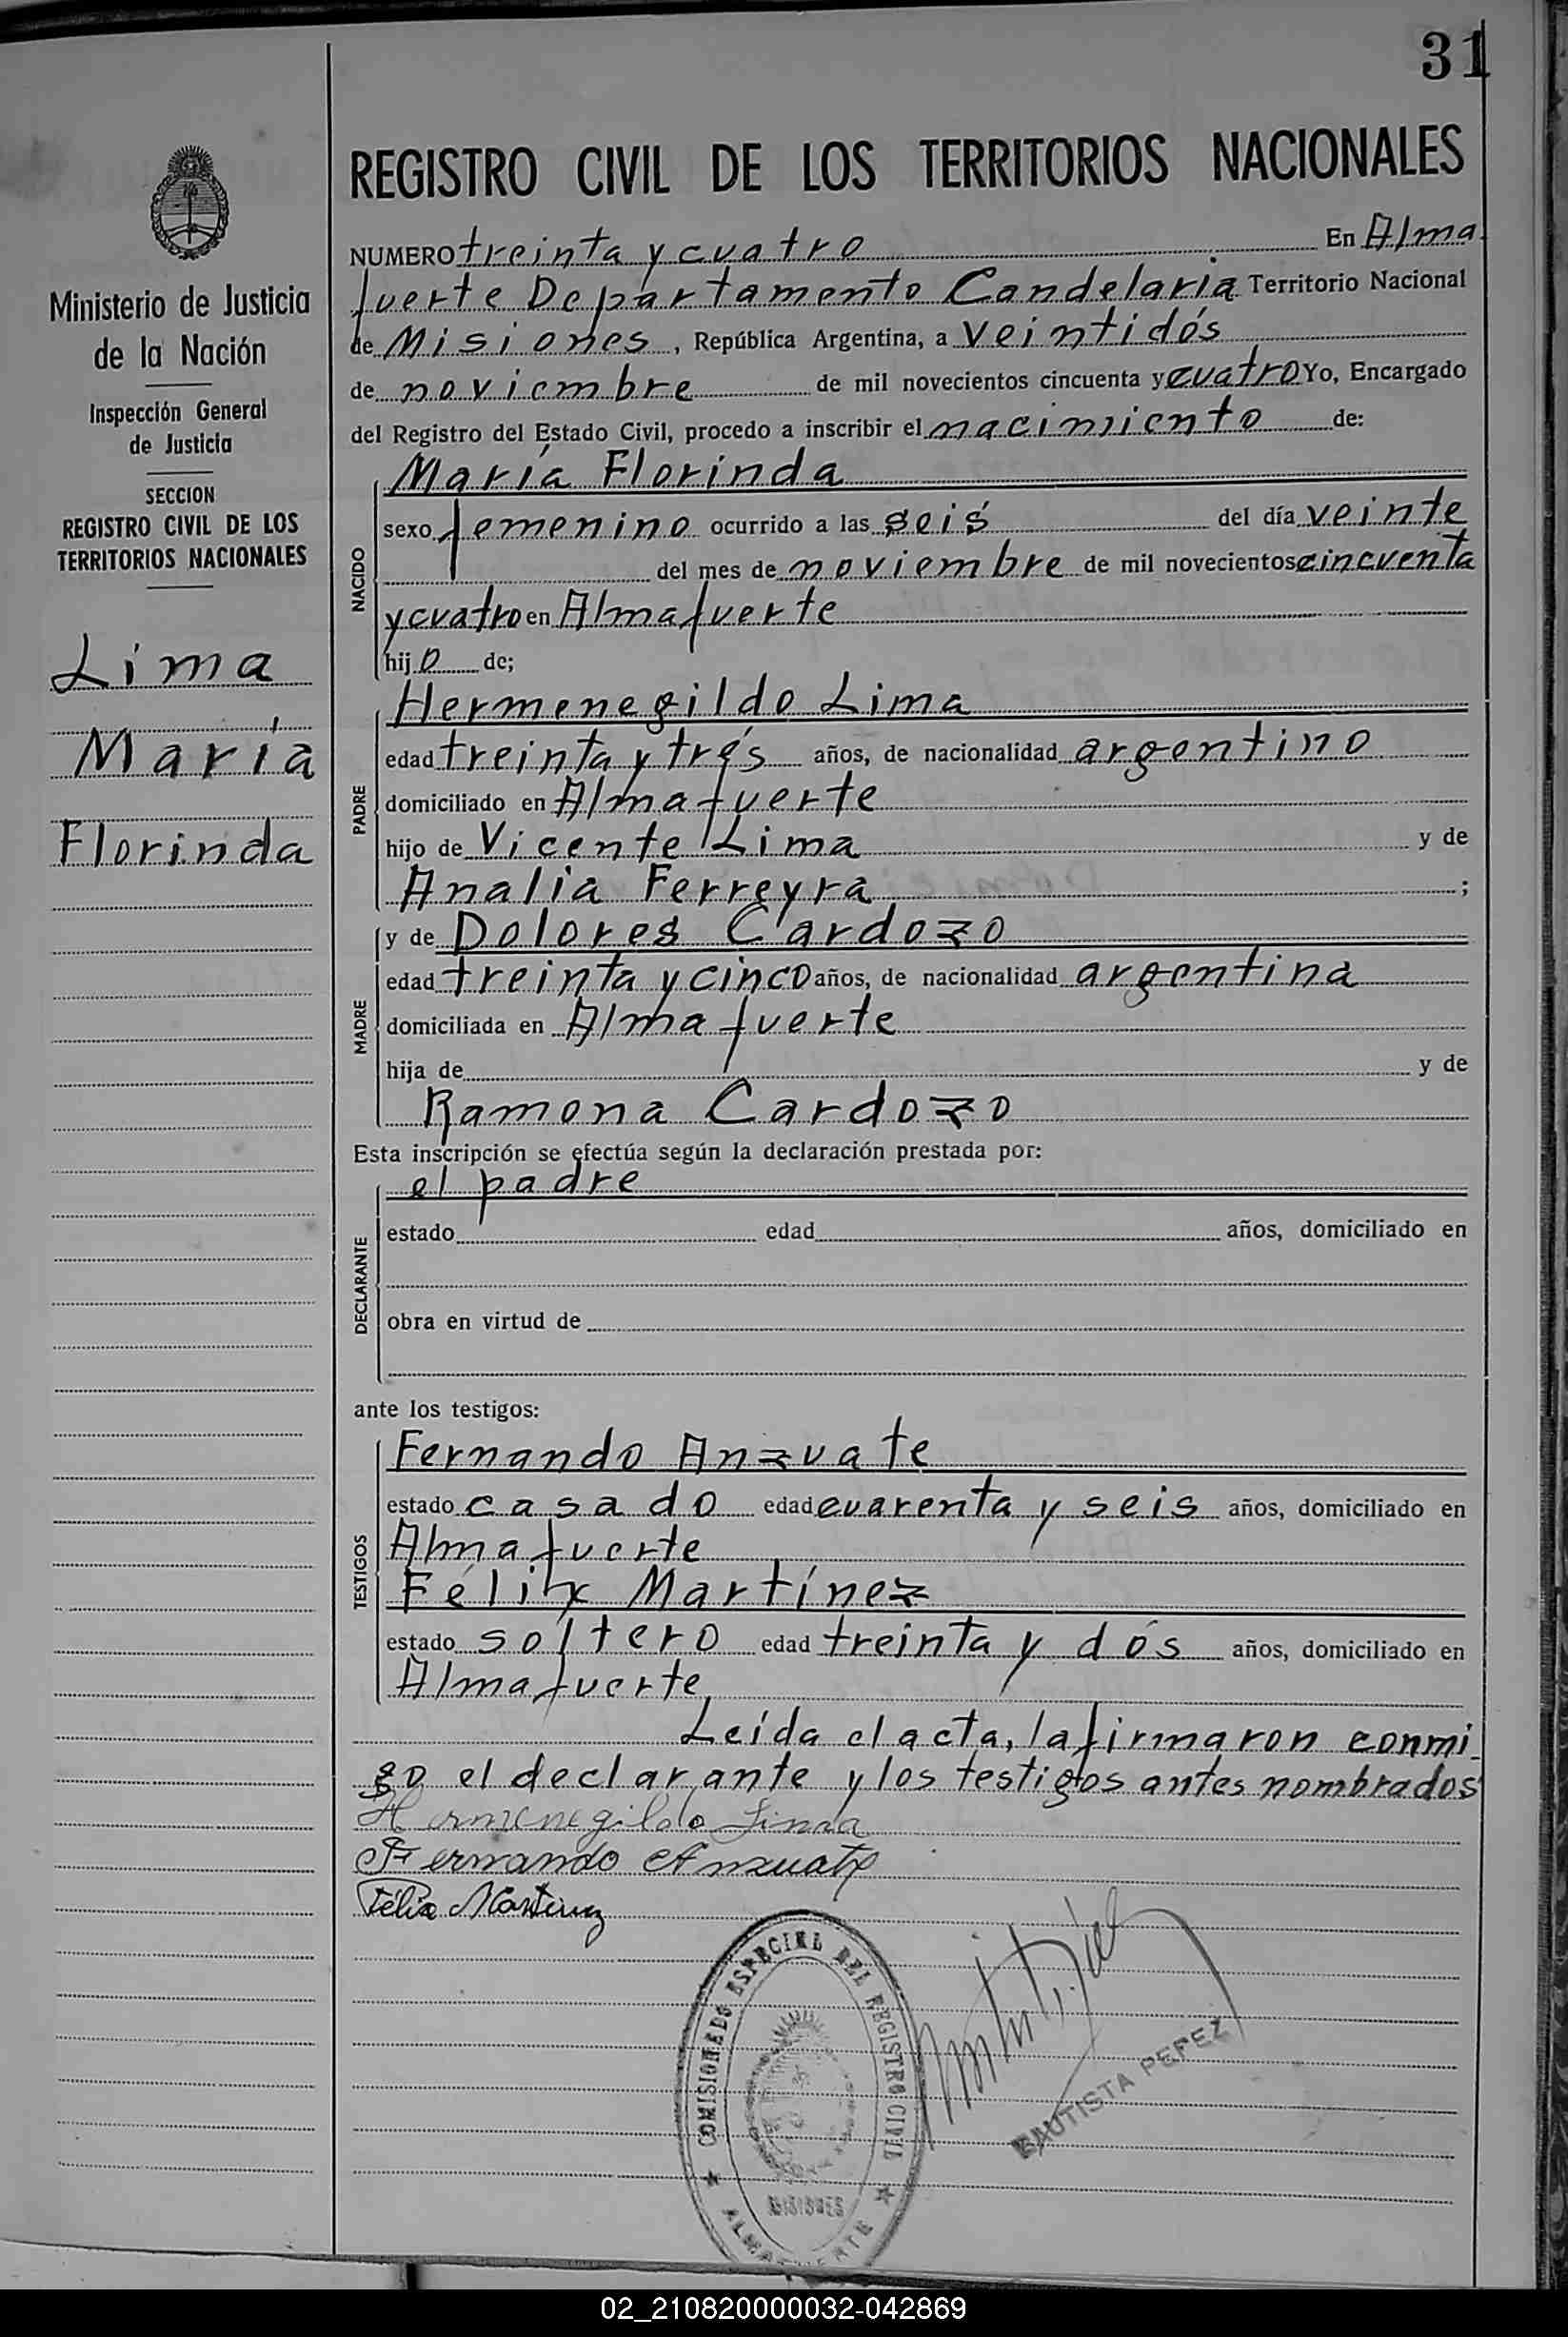 31
REGISTRO CIVIL DE LOS TERRITORIOS NACIONALES
Ministerio de Justicia
de la Nación
Inspección General
de Justicia
SECCION
REGISTRO CIVIL DE LOS
TERRITORIOS NACIONALES
Lima
María
Florinda
NUMERO treinta y cuatro En Alma
fuerte Departamento Candelaria Territorio Nacional
de Misiones, República Argentina, a veintidós
de noviembre de mil novecientos cincuenta y cuatro Yo, Encargado
del Registro del Estado Civil, procedo a inscribir el nacimiento de:
NACIDO
María Florinda
sexo femenino ocurrido a las seis del día veinte
del mes de noviembre de mil novecientos cincuenta
y cuatro en Almafuerte
hijo de;
PADRE
Hermenegildo Lima
edad treinta y trés años, de nacionalidad argentino
domiciliado en Almafuerte
hijo de Vicente Lima y de
Analia Ferreyra ;
MADRE
y de Dolores Cardozo
edad treinta y cinco años, de nacionalidad argentina
domiciliada en Almafuerte
hija de y de
Ramona Cardozo
Esta inscripción se efectúa según la declaración prestada por:
DECLARANTE
el padre
estado edad años, domiciliado en
obra en virtud de
ante los testigos:
TESTIGOS
Fernando Anzuate
estado casado edad cuarenta y seis años, domiciliado en
Almafuerte
Félix Martínez
estado soltero edad treinta y dós años, domiciliado en
Almafuerte
Leída el acta, la firmaron conmi-
go el declarante y los testigos antes nombrados
Hermenegildo Lima
Fernando Anzuate
Félix Martinez
COMISIONADO ESPECIAL DEL REGISTRO CIVIL
MISIONES
ALMAFUERTE
BAUTISTA PEREZ
02_210820000032-042869